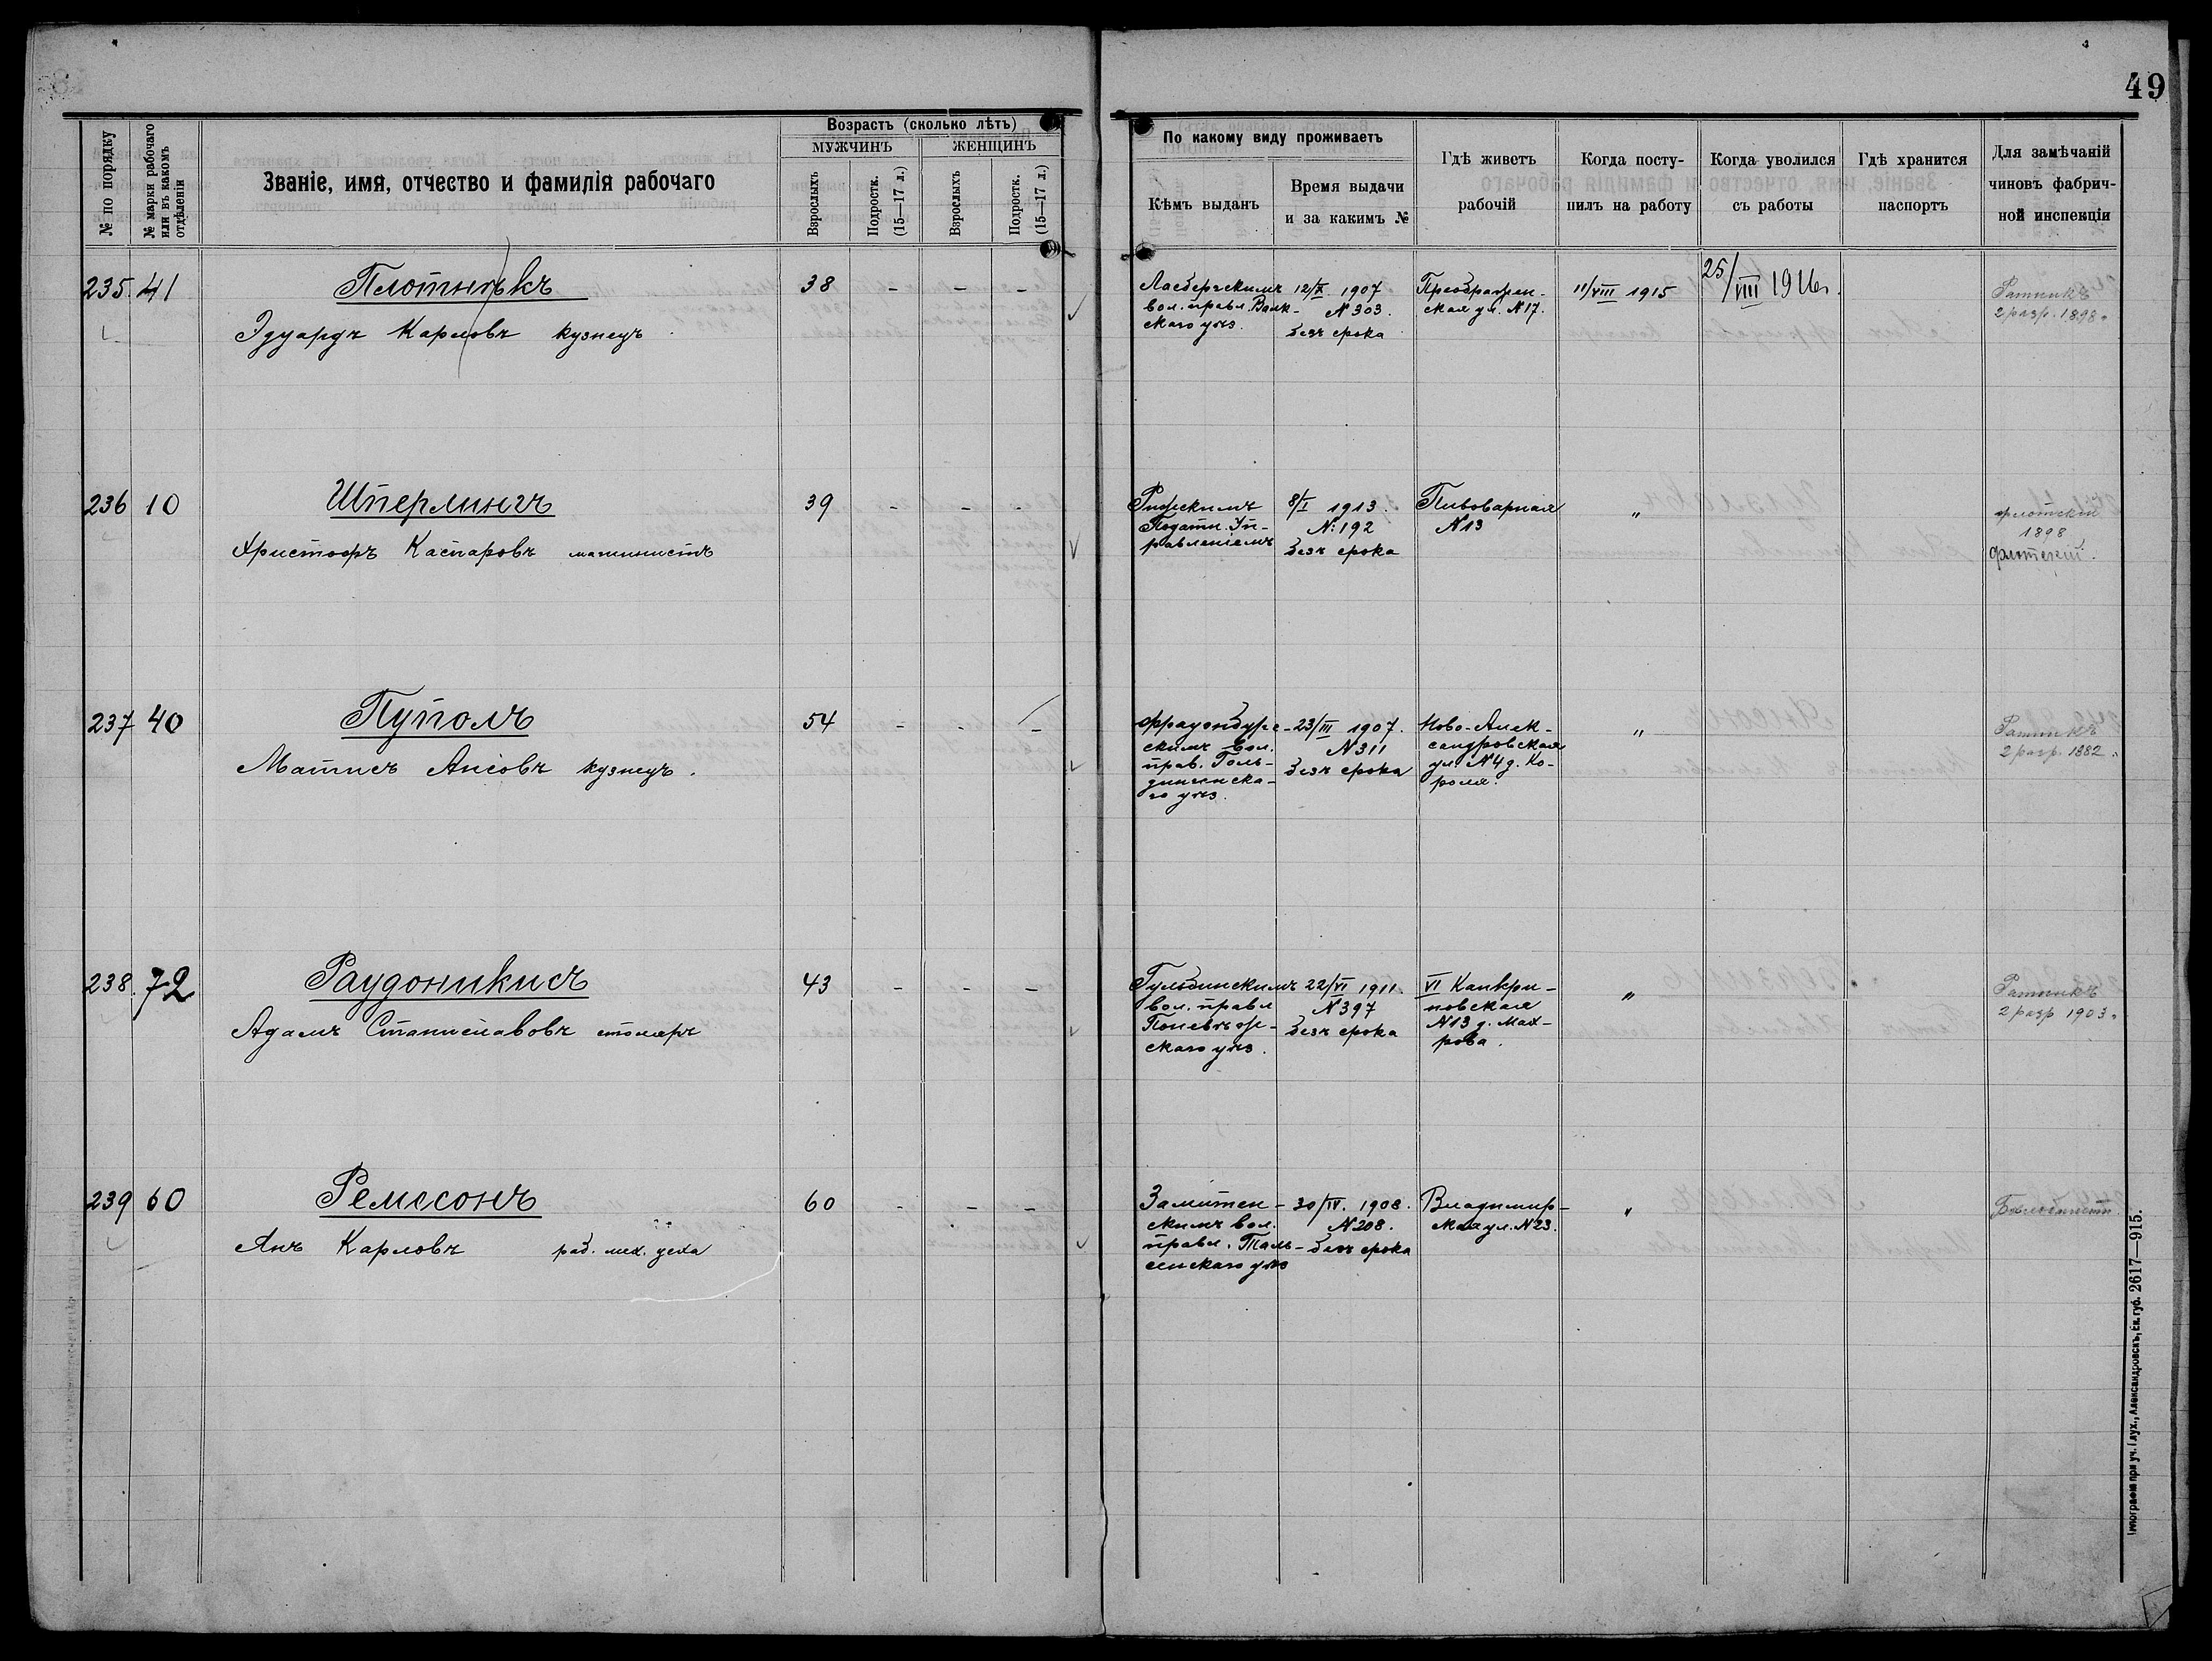 49
№ по порядку
№ марки рабочаго или въ какомъ отдѣленіи
Званіе, имя, отчество и фамилія рабочаго
Возрастъ (сколько лѣтъ)
МУЖЧИНЪ
ЖЕНЩИНЪ
Взрослыхъ
Подростк. (15—17 л.)
Взрослыхъ
Подростк. (15—17 л.)
По какому виду проживаетъ
Кѣмъ выданъ
Время выдачи
и за какимъ №
Гдѣ живетъ
рабочій
Когда посту-
пилъ на работу
Когда уволился
съ работы
Гдѣ хранится
паспортъ
Для замѣчаній
чиновъ фабрич-
ной инспекціи
235. 41
Плотнѣкъ
Эдуардъ Карловъ кузнецъ
38 - - -
Ласбергскимъ
вол. правл. Валк-
скаго уѣз.
12/X 1907
N 303.
безъ срока
Преображен-
ская ул. N 17.
11/VIII 1915
25/VIII 1916г.
Ратникъ
2 разр. 1898 г
236 10
Шперлингъ
Христофъ Каспаровъ машинистъ
39 - - -
Рижскимъ
Податн. Уп-
равленіемъ
8/I 1913.
N: 192
безъ срока
Пивоварная
N 13
"
флотскій
1898
флотскій.
237 40
Пуполъ
Матисъ Ансовъ кузнецъ.
54 - - -
Фрауенбург-
скимъ вол.
прав. Голь-
дингенска-
го уѣз.
23/III 1907.
N 311
безъ срока
Ново-Алек-
сандровская
ул. N 4 д. Ко-
роля.
"
Ратникъ
2 разр. 1882 г
238. 72
Раудоникисъ
Адамъ Станиславовъ столяръ
43 - - -
Гульбинскимъ
вол. правл
Поневѣж-
скаго уѣз.
22/VI 1911
N 397
безъ срока
VI Канкри-
новская
N 13 д. Мах-
рова.
"
Ратникъ
2 разр 1903 г
239 60
Ремесонъ
Анъ Карловъ раб. мех. цеха
60 - - -
Замитен-
скимъ вол.
правл. Таль-
сенскаго уѣз
30/IV. 1908.
N 208.
безъ срока
Владимир-
ская ул. N 23.
"
Типографія при уч. Глух., Александровскъ, Ек. губ. 2617—915.